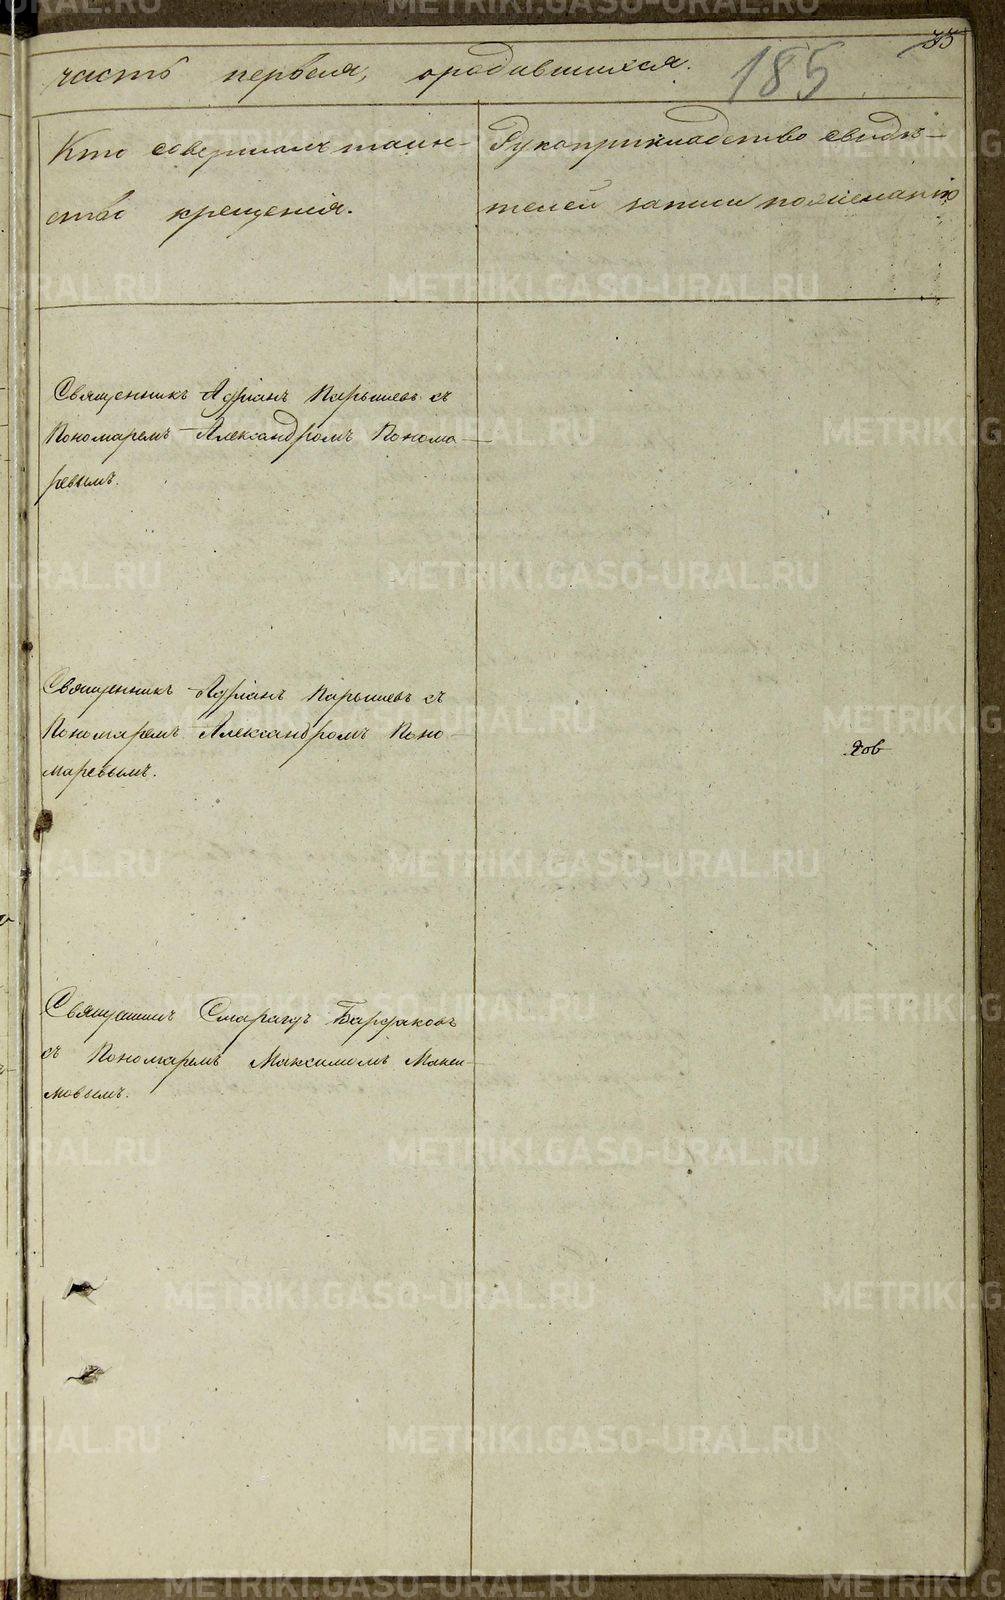 35
185
часть первая, ородившихся.
Кто совершалъ таин-
ство крещенія.
Рукоприкладство свидѣ-
телей записи пожеланію
Священникъ Адріанъ Парышевъ съ
Пономаремъ Александромъ Понома-
ревымъ.
Священникъ Адріанъ Парышевъ съ
Пономаремъ Александромъ Поно-
маревымъ.
Священникъ Смарагдъ
съ Пономаремъ Максимомъ Макси-
мовымъ.
METRIKI.GASO-URAL.RU